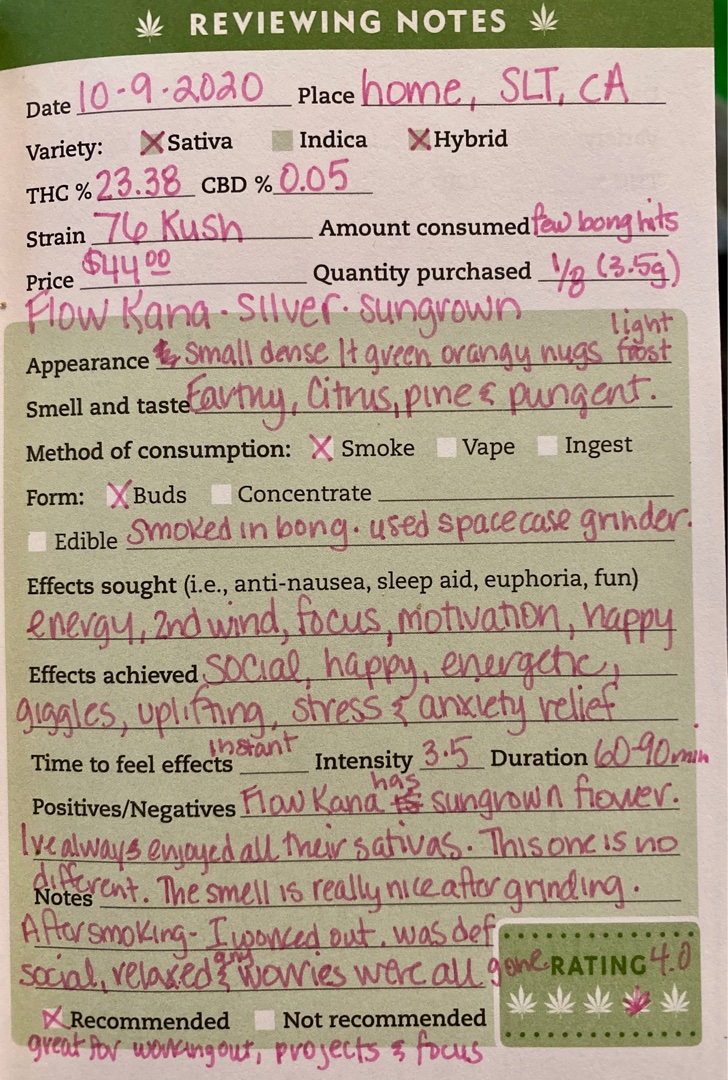 REVIEWING NOTES
Date 10-9-2020 Place home, SLT, CA
Variety: Sativa Indica Hybrid
THC % 23.38 CBD % 0.05
Strain 76 Kush Amount consumed few bong hits
Price $44.00 Quantity purchased 1/8 (3.5g)
Flow Kana · Silver · sungrown
light
Appearance small dense lt green orangy nugs frost
Smell and taste Earthy, Citrus, pine & pungent.
Method of consumption: Smoke Vape Ingest
Form: Buds Concentrate
Edible Smoked in bong. used spacecase grinder.
Effects sought (i.e., anti-nausea, sleep aid, euphoria, fun)
energy, 2nd wind, focus, motivation, happy
Effects achieved social, happy, energetic,
giggles, uplifting, stress & anxiety relief
Time to feel effects instant Intensity 3.5 Duration 60-90 min
Positives/Negatives Flow Kana has sungrown flower.
Ive always enjoyed all their sativas. This one is no
different. The smell is really nice after grinding.
Notes
After smoking- I worked out, was def
social, relaxed & any worries were all gone.
RATING 4.0
Recommended Not recommended
great for working out, projects & focus